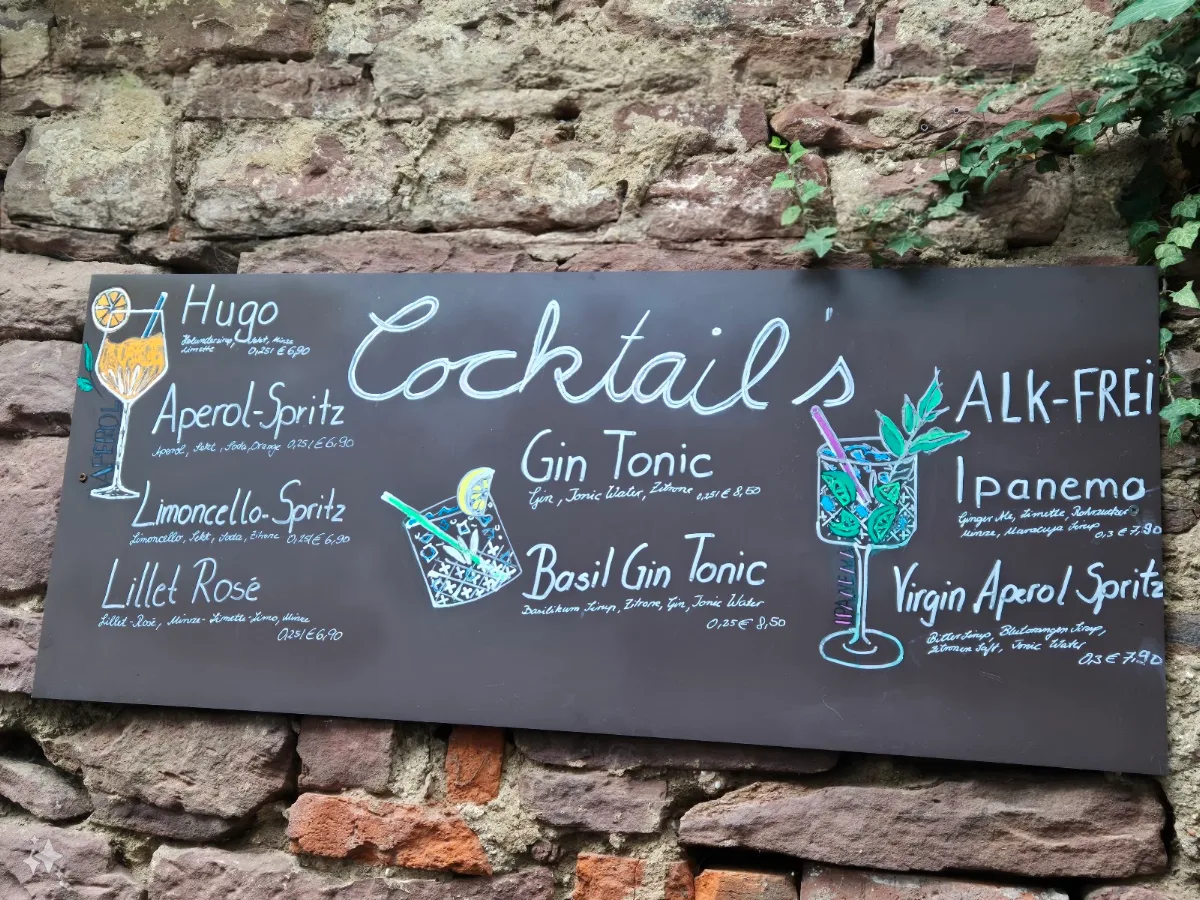 Cocktail's
Hugo
Holundersirup, Sekt, Minze
Limette 0,25l € 6,90
Aperol-Spritz
Aperol, Sekt, Soda, Orange 0,25l € 6,90
Limoncello-Spritz
Limoncello, Sekt, Soda, Zitrone 0,25l € 6,90
Lillet Rosé
Lillet-Rosé, Minze-Limette-Limo, Minze
0,25l € 6,90
APEROL
Gin Tonic
Gin, Tonic Water, Zitrone 0,25l € 8,50
Basil Gin Tonic
Basilikum Sirup, Zitrone, Gin, Tonic Water
0,25 € 8,50
IPANEMA
ALK-FREi
Ipanema
Ginger Ale, Limette, Rohrzucker
Minze, Maracuja Sirup 0,3 € 7,90
Virgin Aperol Spritz
Bitter Sirup, Blutorangen Sirup,
Zitronen Saft, Tonic Water
0,3 € 7,90